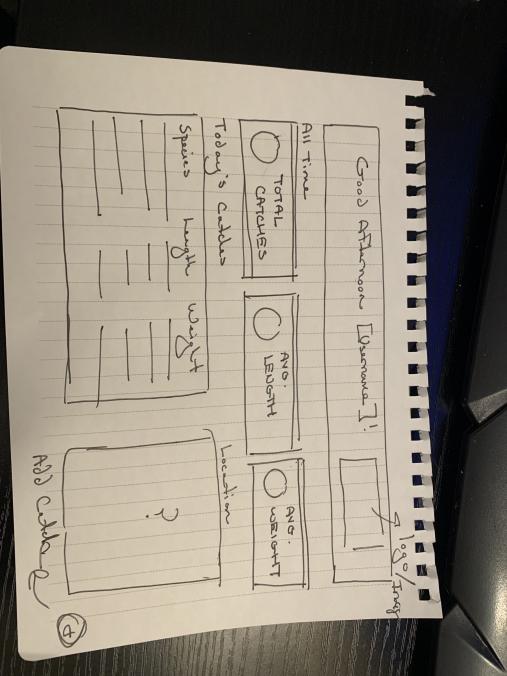 logo/Image
Good Afternoon [Username]!
All Time
TOTAL
CATCHES
AVG.
LENGTH
AVG.
WEIGHT
Today's Catches
Location
Species Length Weight
?
+
Add Catch